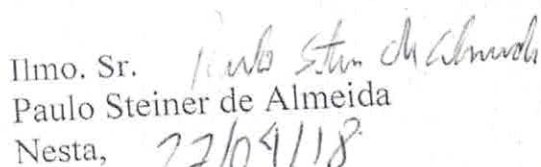 Ilmo. Sr. Paulo Steiner de Almeida
Paulo Steiner de Almeida
Nesta, 27/09/18